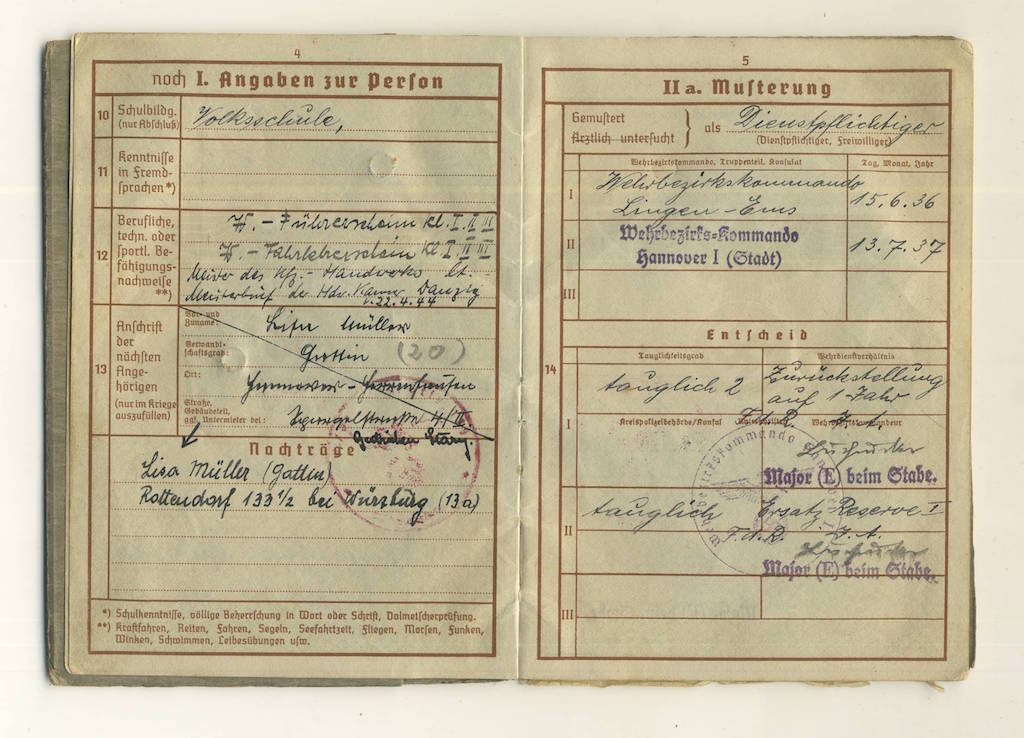 4
noch I. Angaben zur Person
10 Schulbildg. (nur Abschluß)
Volksschule,
11 Kenntnisse in Fremdsprachen *)
12 Berufliche, techn. oder sportl. Befähigungsnachweise **)
W. - Führerschein Kl. I. II III
W. - Fahrlehrerschein Kl I. II III
Meister des Kfz. - Handwerks lt.
Meisterbrief der Hdw. Kammer Danzig
v. 22.4.44
13 Anschrift der nächsten Angehörigen (nur im Kriege auszufüllen)
Vor- und Zuname:
Lisa Müller
Verwandtschaftsgrad:
Gattin (20)
Ort:
Hannover - Herrenhausen
Straße, Gebäudeteil, ggf. Untermieter bei:
4/II.
Nachträge
Lisa Müller (Gattin)
Rottendorf 133 1/2 bei Würzburg (13a)
*) Schulkenntnisse, völlige Beherrschung in Wort oder Schrift, Dolmetscherprüfung.
**) Kraftfahren, Reiten, Fahren, Segeln, Seefahrtzeit, Fliegen, Morsen, Funken,
Winken, Schwimmen, Leibesübungen usw.
5
II a. Musterung
Gemustert
Ärztlich untersucht } als Dienstpflichtiger
(Dienstpflichtiger, Freiwilliger)
Wehrbezirkskommando, Truppenteil, Konsulat
Tag, Monat, Jahr
I Wehrbezirkskommando
Lingen-Ems
15.6.36
II Wehrbezirks=Kommando
Hannover I (Stadt)
13.7.37
III
Entscheid
14
Tauglichkeitsgrad
Wehrdienstverhältnis
I tauglich 2
Zurückstellung
auf 1 Jahr
Kreispolizeibehörde/Konsul
F.d.R.
J. A.
Major (E) beim Stabe.
II tauglich
Ersatz Reserve I
F.d.R.
J. A.
Major (E) beim Stabe.
III